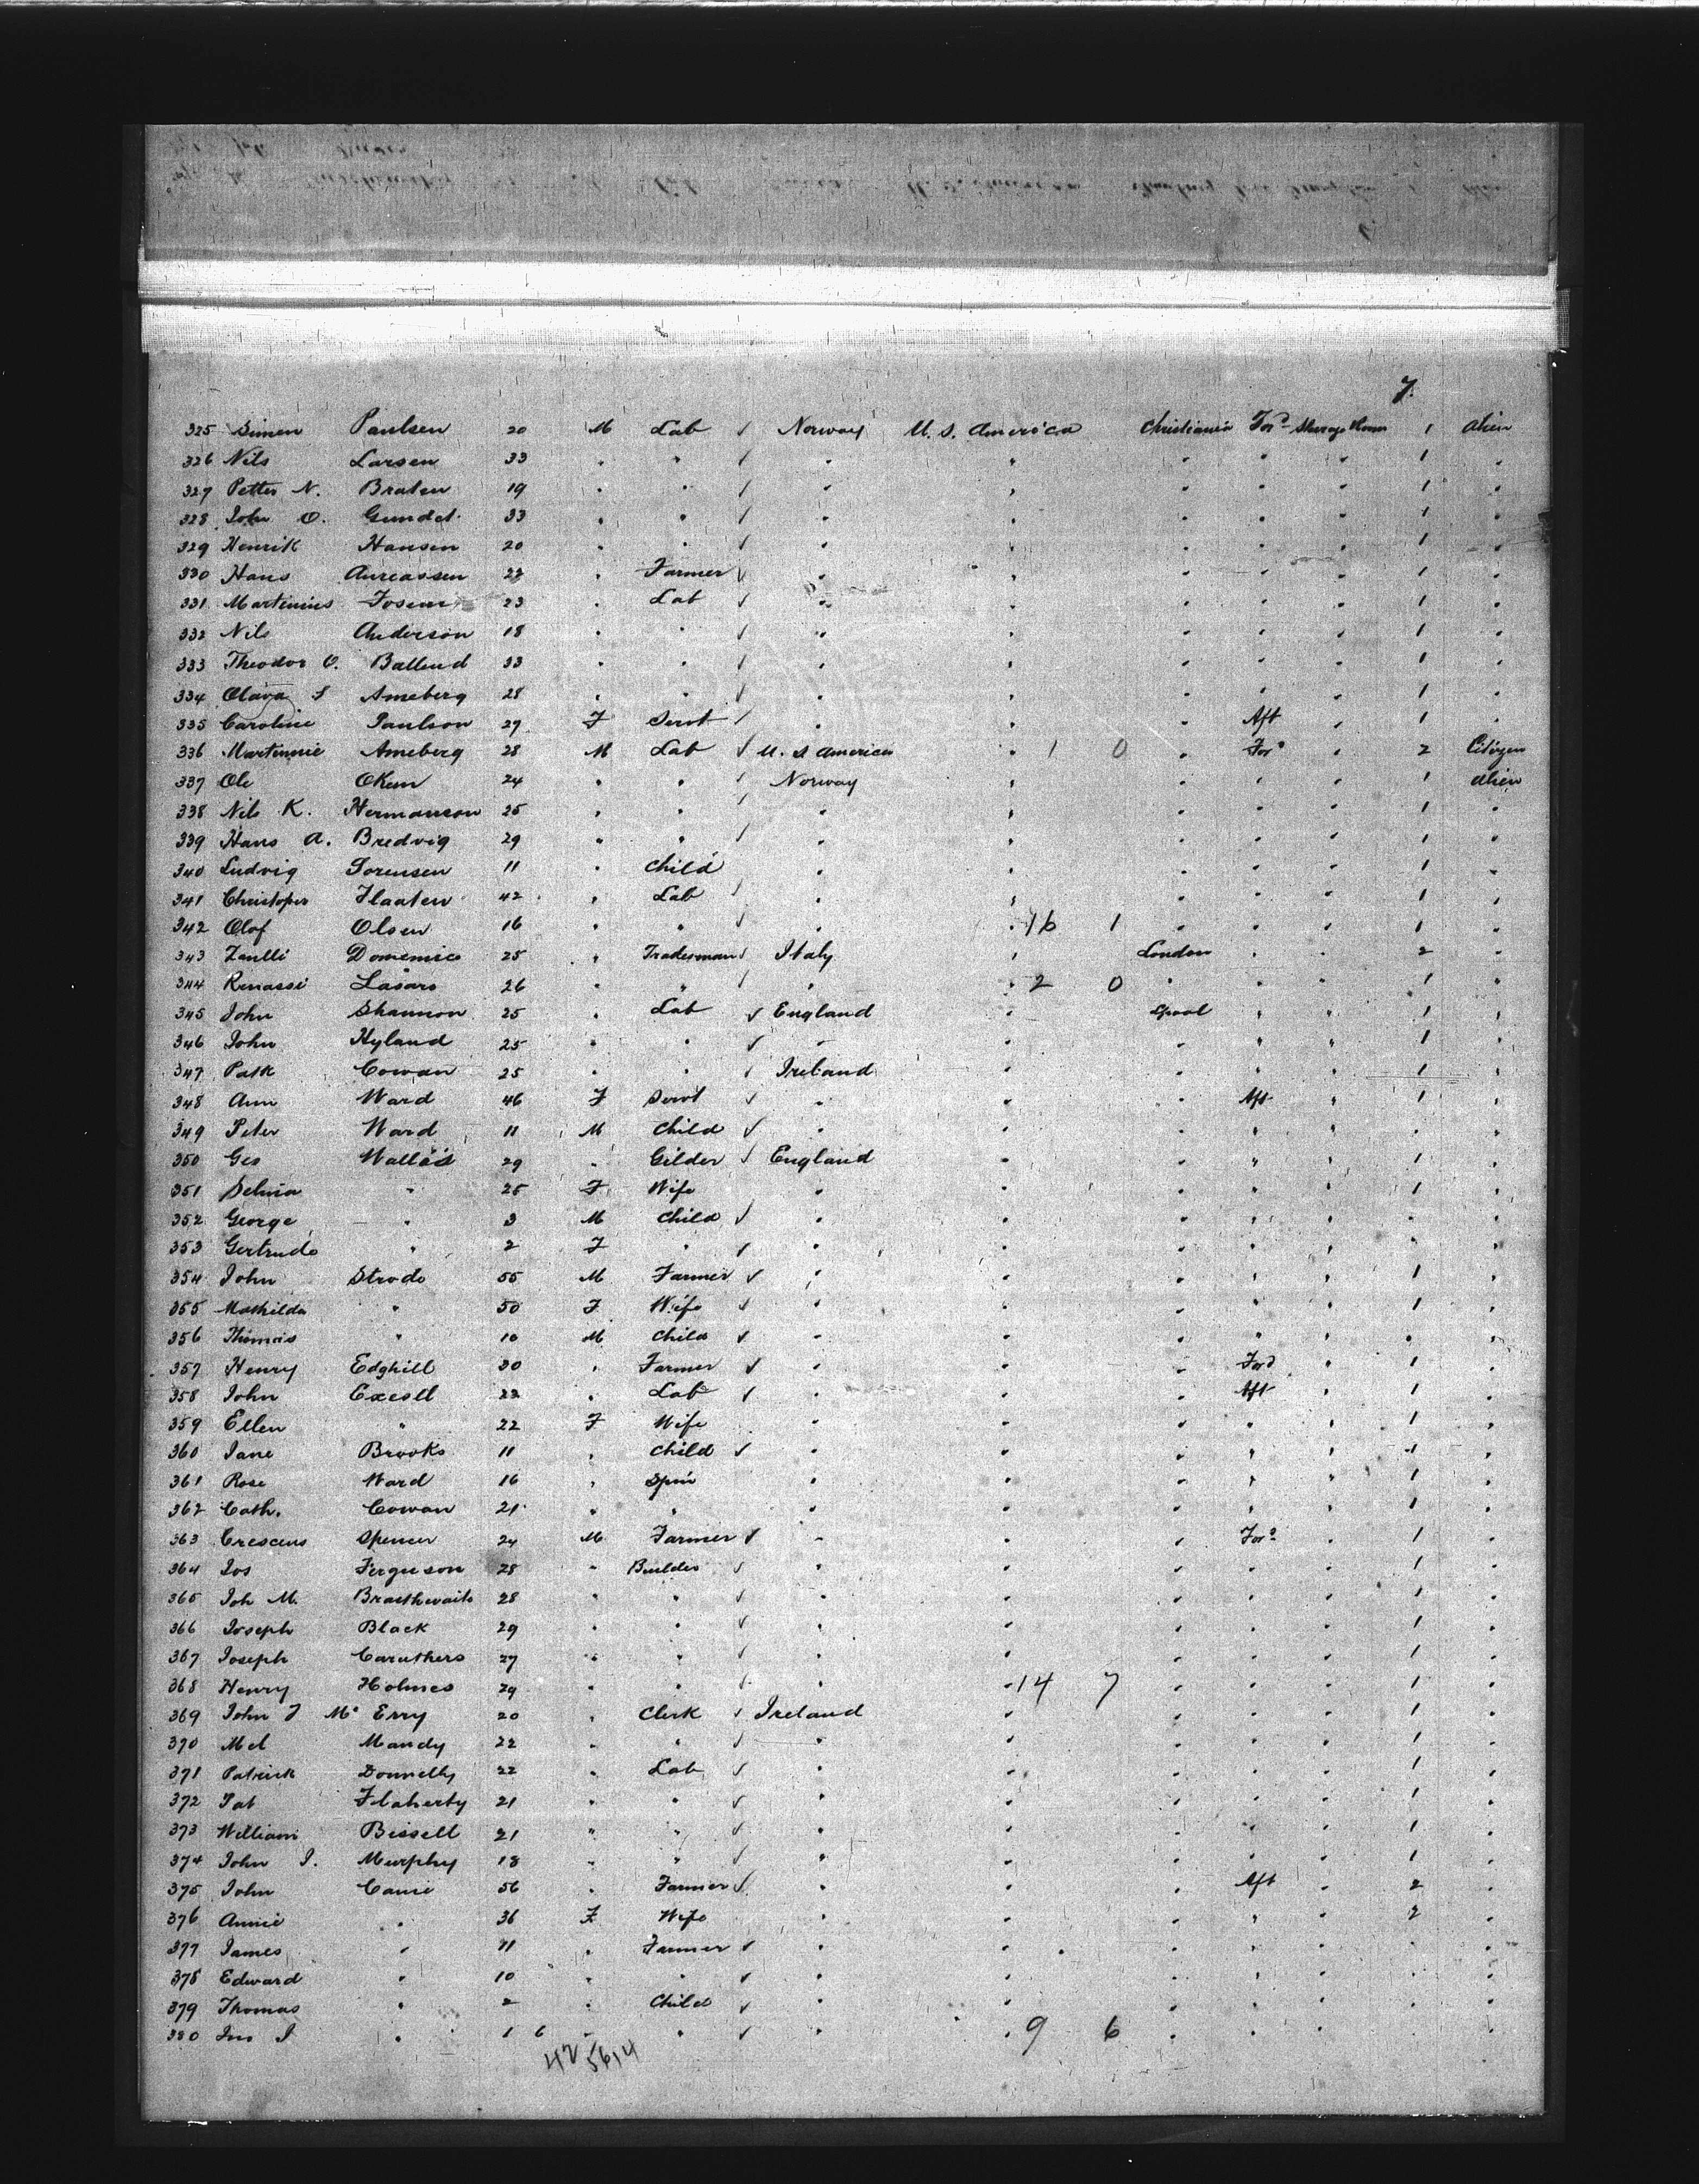 7.
325 Simen Paulsen 20 M Lab ✓ Norway U. S. America Christiania For^d Steerage 1 Alien
326 Nils Larsen 33 " " ✓ " " " " " 1 "
327 Petter N. Braten 19 " " ✓ " " " " " 1 "
328 John O. Gundet 33 " " ✓ " " " " " 1 "
329 Henrik Hansen 20 " " ✓ " " " " " 1 "
330 Hans Aureassen 22 " Farmer ✓ " " " " " 1 "
331 Martinius 23 " Lab ✓ " " " " " 1 "
332 Nils Anderson 18 " " ✓ " " " " " 1 "
333 Theodor O. Ballund 33 " " ✓ " " " " " 1 "
334 Olava S Ameberg 28 " " ✓ " " " " " 1 "
335 Caroline Paulson 29 F Servt ✓ " " " Aft " 1 "
336 Martinnie Ameberg 28 M Lab ✓ U. S America " 1 0 " For^d " 2 Citizen
337 Ole Oken 24 " " ✓ Norway " " " " 1 Alien
338 Nils K. Hermanson 25 " " ✓ " " " " " 1 "
339 Hans A. Bredvig 29 " " ✓ " " " " " 1 "
340 Ludvig Sorensen 11 " Child " " " " " 1 "
341 Christoper Flaaten 42 " Lab ✓ " " " " " 1 "
342 Olof Olsen 16 " " ✓ " " 16 1 " " " 1 "
343 Zaulli Domenico 25 " Tradesman ✓ Italy " London " " 2 "
344 Renassi Lasaro 26 " " ✓ " " 2 0 " " " 1 "
345 John Shannon 25 " Lab ✓ England " Lpool " " 1 "
346 John Hyland 25 " " ✓ " " " " " 1 "
347 Patk Cowan 25 " " ✓ Ireland " " " " 1 "
348 Ann Ward 46 F Servt ✓ " " " Aft " 1 "
349 Peter Ward 11 M Child ✓ " " " " " " "
350 Geo Wallas 29 " Gilder ✓ England " " " " 1 "
351 Selina " 25 F Wife " " " " " 1 "
352 George " 3 M Child ✓ " " " " " " "
353 Gertrude " 2 F " ✓ " " " " " " "
354 John Strode 55 M Farmer ✓ " " " " " 1 "
355 Mathilda " 50 F Wife ✓ " " " " " 1 "
356 Thomas " 10 M Child ✓ " " " " " " "
357 Henry Edghill 30 " Farmer ✓ " " " Ford " 1 "
358 John Excell 22 " Lab ✓ " " " Aft " 1 "
359 Ellen " 22 F Wife " " " " " 1 "
360 Jane Brooks 11 " Child ✓ " " " " " 1 "
361 Rose Ward 16 " Spin " " " " " 1 "
362 Cath. Cowan 21 " " " " " " " 1 "
363 Crescens Spencer 24 M Farmer ✓ " " " For^d " 1 "
364 Jos Ferguson 28 " Builder ✓ " " " " " 1 "
365 Joh M. Braithwaite 28 " " ✓ " " " " " 1 "
366 Joseph Black 29 " " ✓ " " " " " 1 "
367 Joseph Caruthers 27 " " ✓ " " " " " 1 "
368 Henry Holmes 29 " " ✓ " " 14 7 " " " 1 "
369 John J Mc Erry 20 " Clerk ✓ Ireland " " " " 1 "
370 Mel Mandy 22 " " ✓ " " " " " 1 "
371 Patrick Donnelly 22 " Lab ✓ " " " " " 1 "
372 Pat Flaherty 21 " " ✓ " " " " " 1 "
373 William Bissell 21 " " ✓ " " " " " 1 "
374 John J. Murphy 18 " " ✓ " " " " " 1 "
375 John Caine 56 " Farmer ✓ " " " Aft " 2 "
376 Annie " 36 F Wife " " " " " 2 "
377 James " 11 " Farmer ✓ " " " " " " "
378 Edward " 10 " " ✓ " " " " " " "
379 Thomas " 2 " Child ✓ " " " " " " "
380 " 1 6 " " ✓ " " 9 6 " " "
42 5614